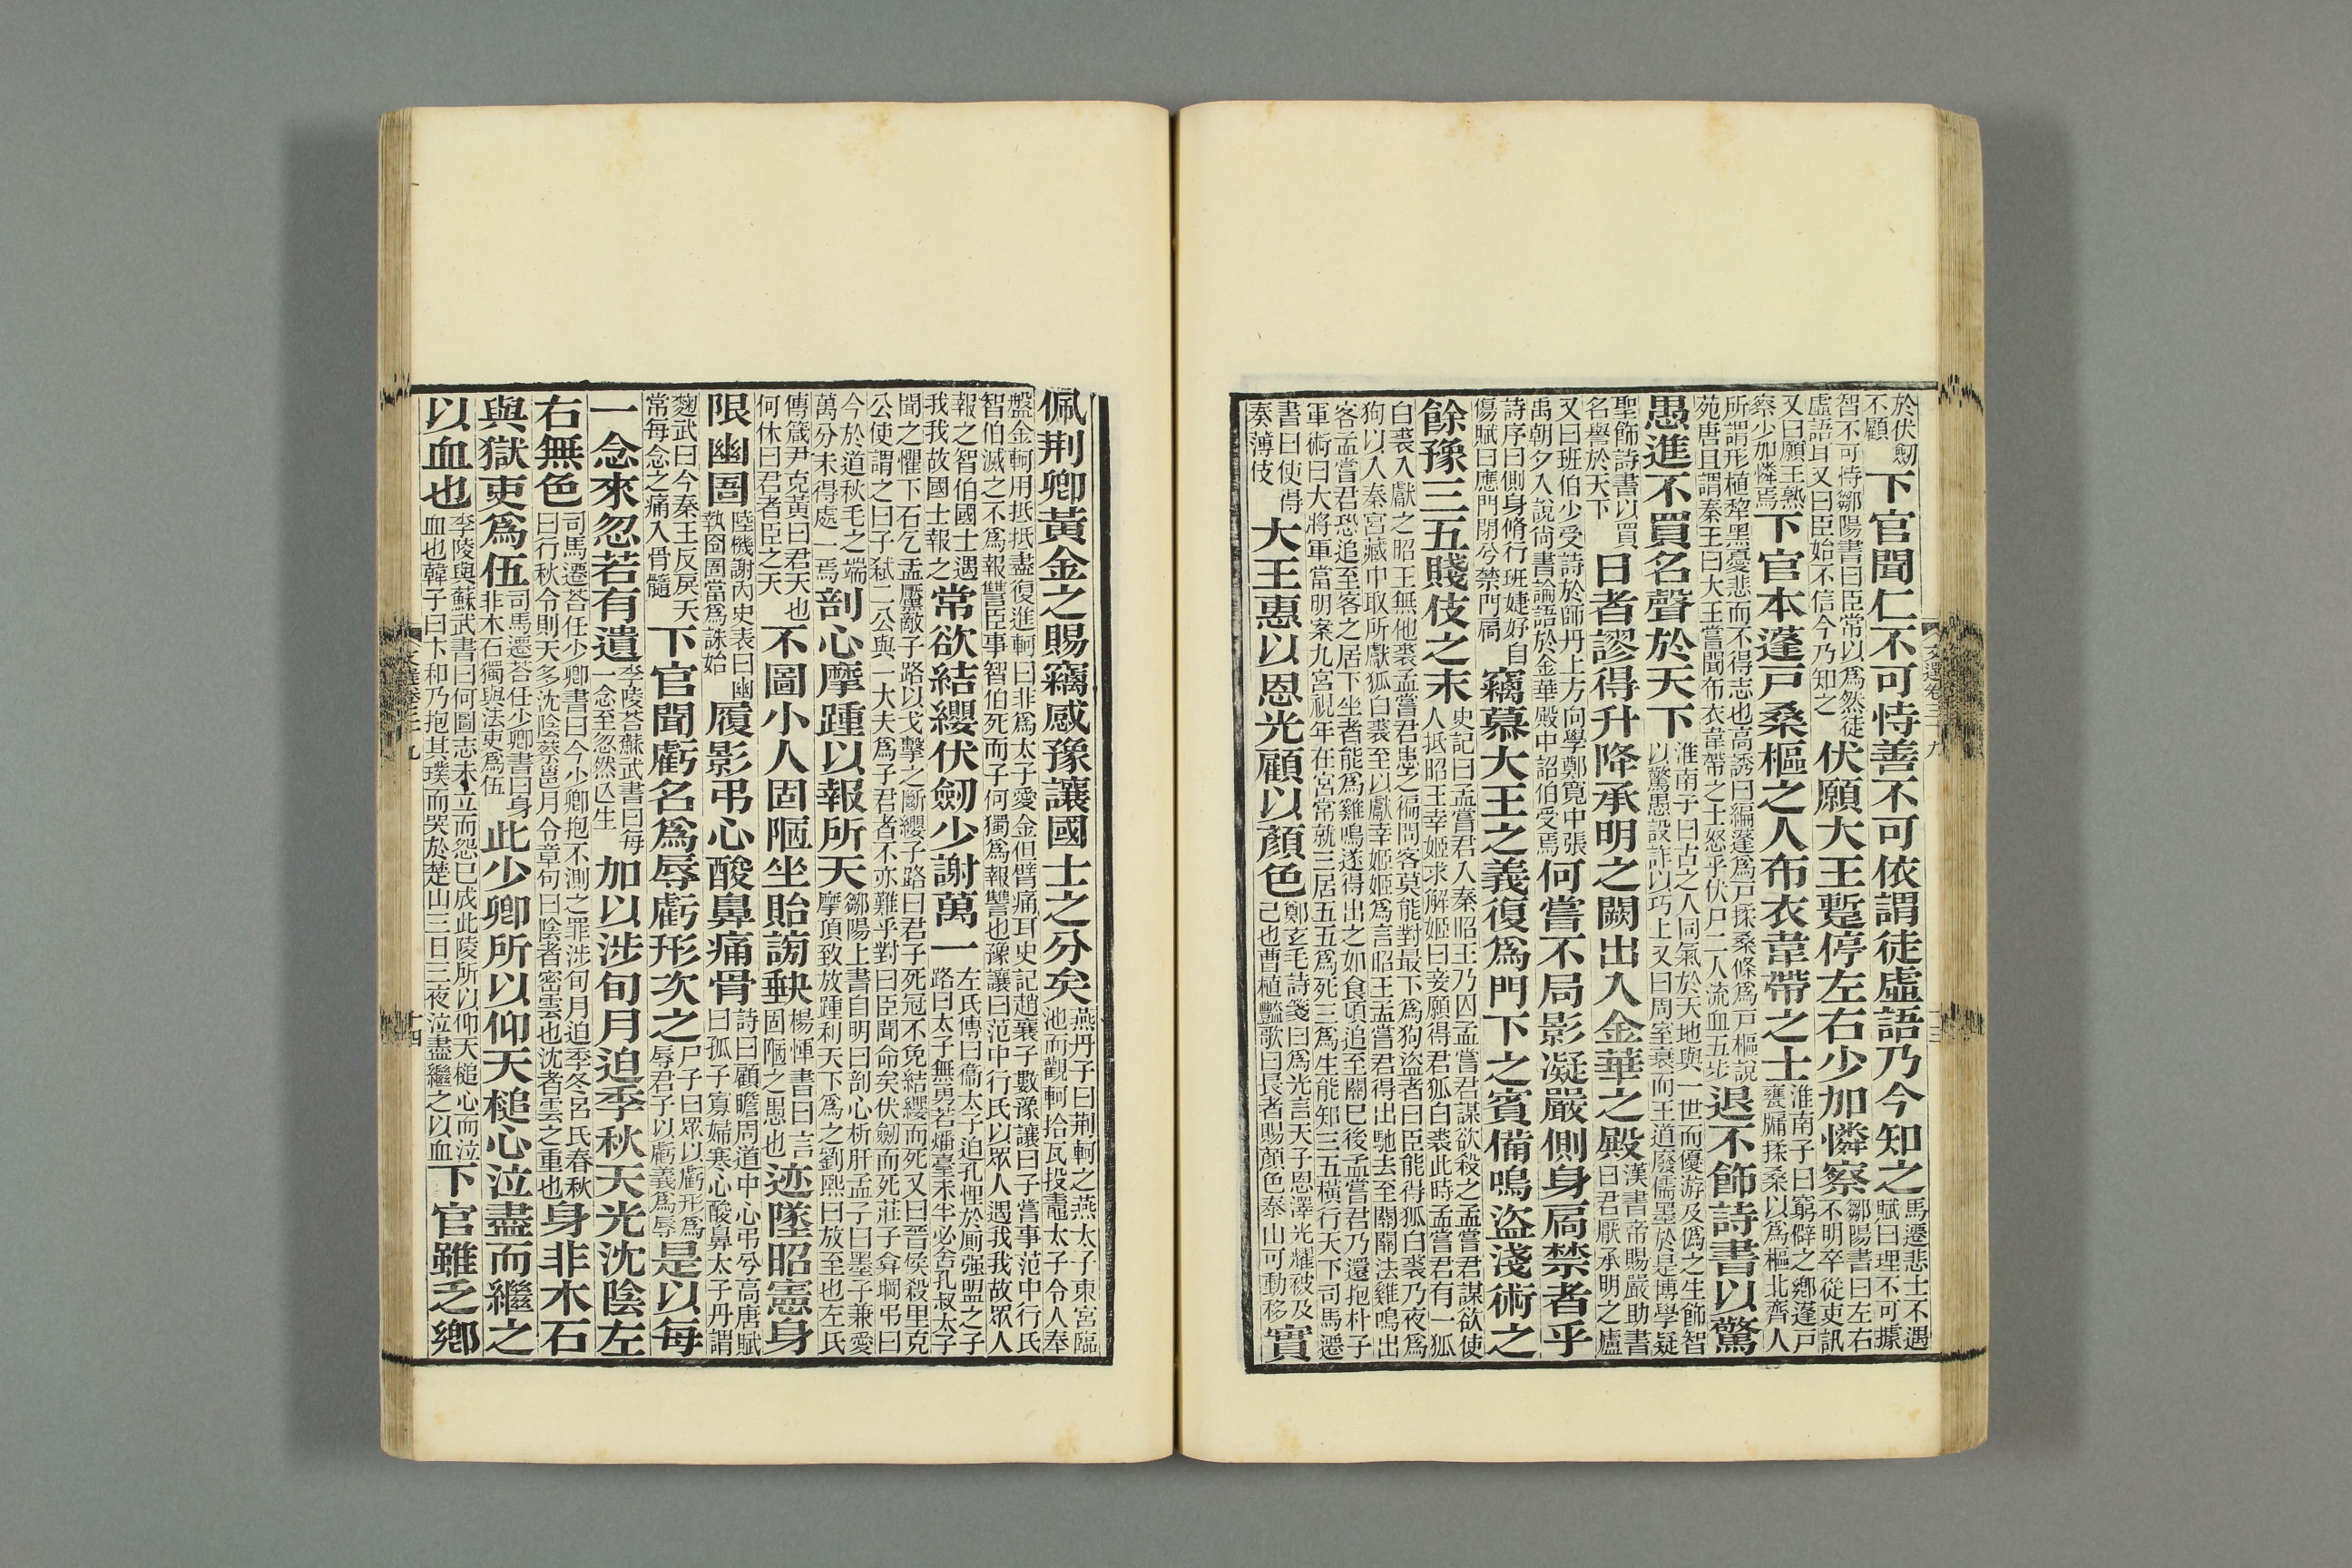 於伏劒不顧下官聞仁不可恃善不可依謂徒虛語乃今知之馬遷悲士不遇賦曰理不可據
智不可恃鄒陽書曰臣常以爲然徒虛語耳又曰臣始不信今乃知之伏願大王蹔停左右少加憐察鄒陽書曰左右不明卒從吏訊
又曰願王熟察少加憐焉下官本蓬戸桑樞之人布衣韋帶之士淮南子曰窮僻之鄉蓬戸甕牖揉桑以爲樞北齊人
所謂形植犂黑憂悲而不得志也高誘曰編蓬爲戸揉桑條爲戸樞說苑唐且謂秦王曰大王嘗聞布衣韋帶之士怒乎伏尸二人流血五步退不飾詩書以驚
愚進不買名聲於天下淮南子曰古之人同氣於天地與一世而優游及僞之生飾智以驚愚設詐以巧上又曰周室衰而王道廢儒墨於是博學疑
聖飾詩書以買名譽於天下日者謬得升降承明之闕出入金華之殿漢書帝賜嚴助書曰君厭承明之廬
又曰班伯少受詩於師丹上方向學鄭寬中張禹朝夕入說尚書論語於金華殿中詔伯受焉何嘗不局影凝嚴側身扃禁者乎
詩序曰側身脩行班婕妤自傷賦曰應門閉兮禁門扃竊慕大王之義復爲門下之賓備鳴盜淺術之
餘豫三五賤伎之末史記曰孟嘗君入秦昭王乃囚孟嘗君謀欲殺之孟嘗君謀欲使人抵昭王幸姬求解姬曰妾願得君狐白裘此時孟嘗君有一狐
白裘入獻之昭王無他裘孟嘗君患之徧問客莫能對最下爲狗盜者曰臣能得狐白裘乃夜爲狗以入秦宮藏中取所獻狐白裘至以獻幸姬姬爲言昭王孟嘗君得出馳去至關關法雞鳴出
客孟嘗君恐追至客之居下坐者能爲雞鳴遂得出之如食頃追至關已後孟嘗君乃還抱朴子軍術曰大將軍當明案九宮視年在宮常就三居五五爲死三爲生能知三五橫行天下司馬遷
書曰使得奏薄伎大王惠以恩光顧以顏色鄭玄毛詩箋曰爲光言天子恩澤光耀被及己也曹植豔歌曰長者賜顏色泰山可動移實
文選卷三十九
佩荆卿黃金之賜竊感豫讓國士之分矣燕丹子曰荆軻之燕太子東宮臨池而觀軻拾瓦投鼃太子令人奉
盤金軻用抵抵盡復進軻曰非爲太子愛金但臂痛耳史記趙襄子數豫讓曰子嘗事范中行氏智伯滅之不爲報讐臣事智伯死而子何獨爲報讐也豫讓曰范中行氏以眾人遇我我故眾人
報之智伯國士遇我我故國士報之常欲結纓伏劒少謝萬一左氏傳曰衞太子迫孔悝於厠强盟之子路曰太子無勇若燔臺未半必舍孔叔太子
聞之懼下石乞盂黶敵子路以戈擊之斷纓子路曰君子死冠不免結纓而死又曰晉侯殺里克公使謂之曰子弑二公與一大夫爲子君者不亦難乎對曰臣聞命矣伏劒而死莊子弇堈弔曰
今於道秋毛之端萬分未得處一焉剖心摩踵以報所天鄒陽上書自明曰剖心析肝孟子曰墨子兼愛摩頂致放踵利天下爲之劉熙曰放至也左氏
傳箴尹克黃曰君天也何休曰君者臣之天不圖小人固陋坐貽謗缺楊惲書曰言固陋之愚也迹墜昭憲身
限幽圄陸機謝內史表曰幽執囹圄當爲誅始履影弔心酸鼻痛骨詩曰顧瞻周道中心弔兮高唐賦曰孤子寡婦寒心酸鼻太子丹謂
麴武曰今秦王反戾天常每念之痛入骨髓下官聞虧名爲辱虧形次之尸子曰眾以虧形爲辱君子以虧義爲辱是以每
一念來忽若有遺李陵荅蘇武書曰每一念至忽然亾生加以涉旬月迫季秋天光沈陰左
右無色司馬遷荅任少卿書曰今少卿抱不測之罪涉旬月迫季冬呂氏春秋曰行秋令則天多沈陰蔡邕月令章句曰陰者密雲也沈者雲之重也身非木石
與獄吏爲伍司馬遷荅任少卿書曰身非木石獨與法吏爲伍此少卿所以仰天槌心泣盡而繼之
以血也李陵與蘇武書曰何圖志未立而怨已成此陵所以仰天槌心而泣血也韓子曰卞和乃抱其璞而哭於楚山三日三夜泣盡繼之以血下官雖乏鄉
十四